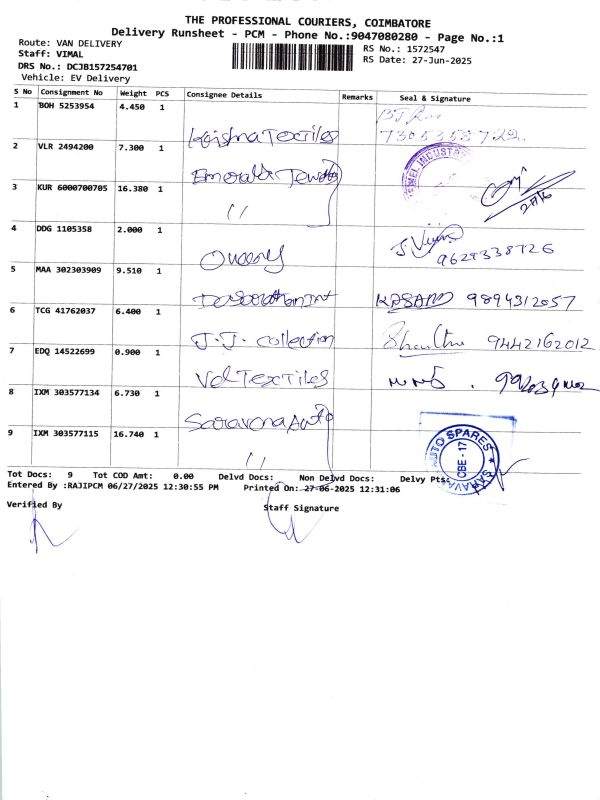 THE PROFESSIONAL COURIERS, COIMBATORE
Delivery Runsheet - PCM - Phone No.:9047080280 - Page No.:1
Route: VAN DELIVERY
Staff: VIMAL
RS No.: 1572547
DRS No.: DCJB157254701
RS Date: 27-Jun-2025
Vehicle: EV Delivery
S No Consignment No Weight PCS Consignee Details Remarks Seal & Signature
1 BOH 5253954 4.450 1
Krishna Textiles 7305353722
2 VLR 2494200 7.300 1
Emerald
3 KUR 6000700705 16.380 1
27/6
4 DDG 1105358 2.000 1
9629338726
5 MAA 302303909 9.510 1
9894312057
6 TCG 41762037 6.400 1
J.J. collection 9442162012
7 EDQ 14522699 0.900 1
Vel Textiles
8 IXM 303577134 6.730 1
Saravana Auto
AUTO SPARES
CBE - 17
9 IXM 303577115 16.740 1
Tot Docs: 9 Tot COD Amt: 0.00 Delvd Docs: Non Delvd Docs: Delvy Ptsc
Entered By :RAJIPCM 06/27/2025 12:30:55 PM Printed On: 27-06-2025 12:31:06
Verified By Staff Signature